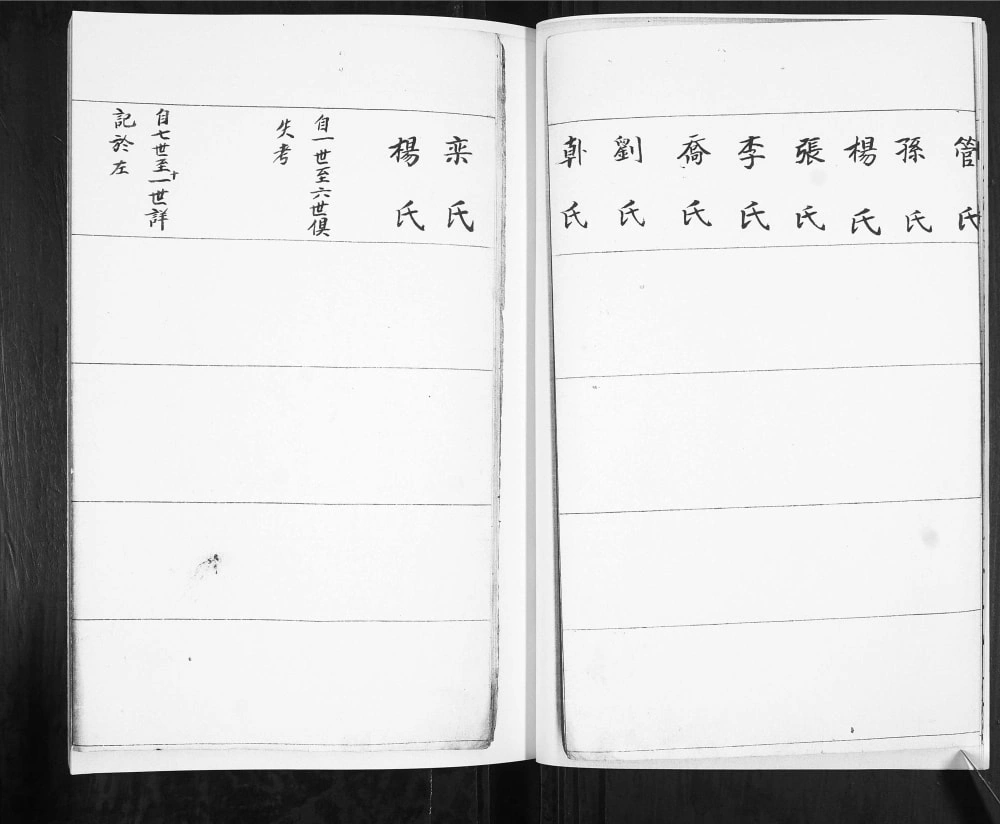 管氏
孫氏
楊氏
張氏
李氏
喬氏
劉氏
氏
栾氏
楊氏
自一世至六世俱
失考
自七世至十一世詳
記於左